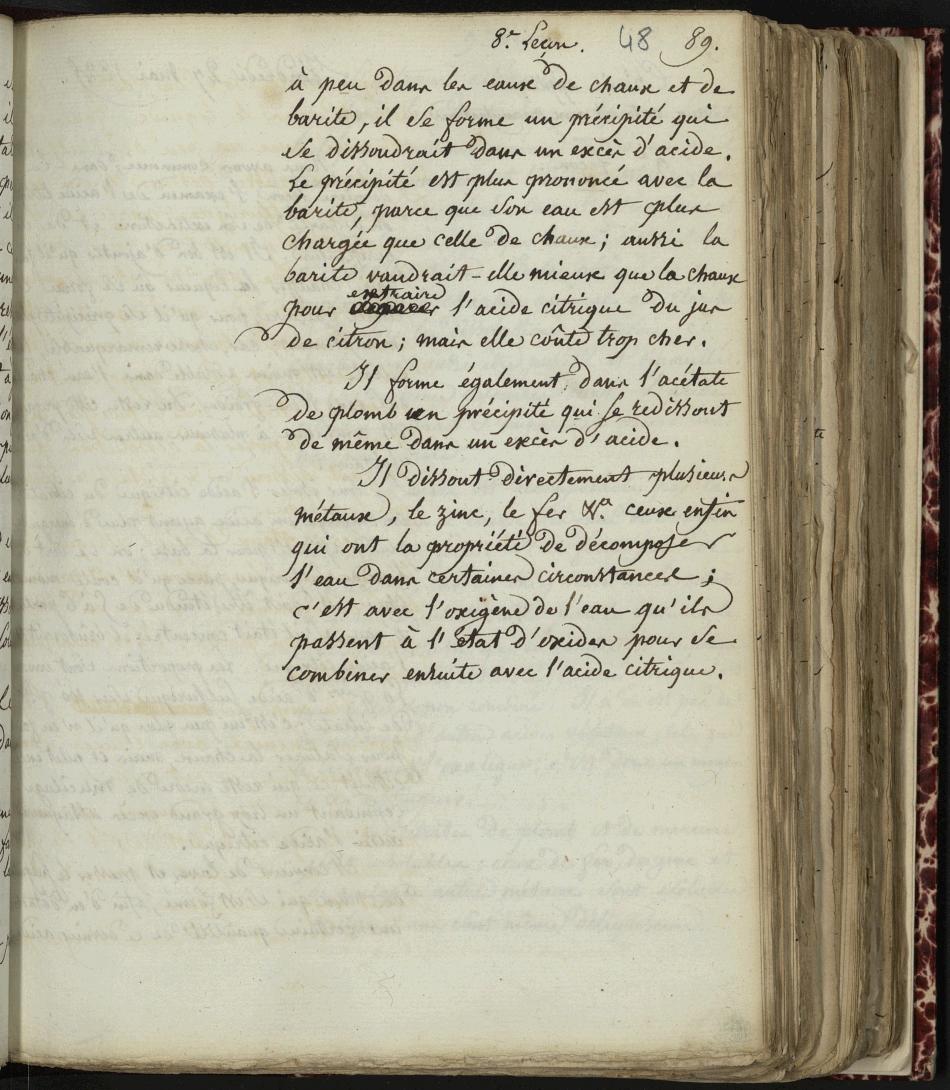 8.e Leçon. 48 89.
à peu dans les eaux de chaux et de
barite, il se forme un précipité qui
se dissoudrait dans un excès d'acide.
Le précipité est plus prononcé avec la
barite, parce que son eau est plus
chargée que celle de chaux; aussi la
barite vaudrait-elle mieux que la chaux
extraire
pour l'acide citrique du jus
de citron; mais elle coûte trop cher.
Il forme également dans l'acétate
de plomb un précipité qui se redissout
de même dans un excès d'acide.
Il dissout directement plusieurs
métaux, le zinc, le fer &.a ceux enfin
qui ont la propriété de décomposer
l'eau dans certaines circonstances;
c'est avec l'oxigène de l'eau qu'ils
passent à l'état d'oxides pour se
combiner ensuite avec l'acide citrique.